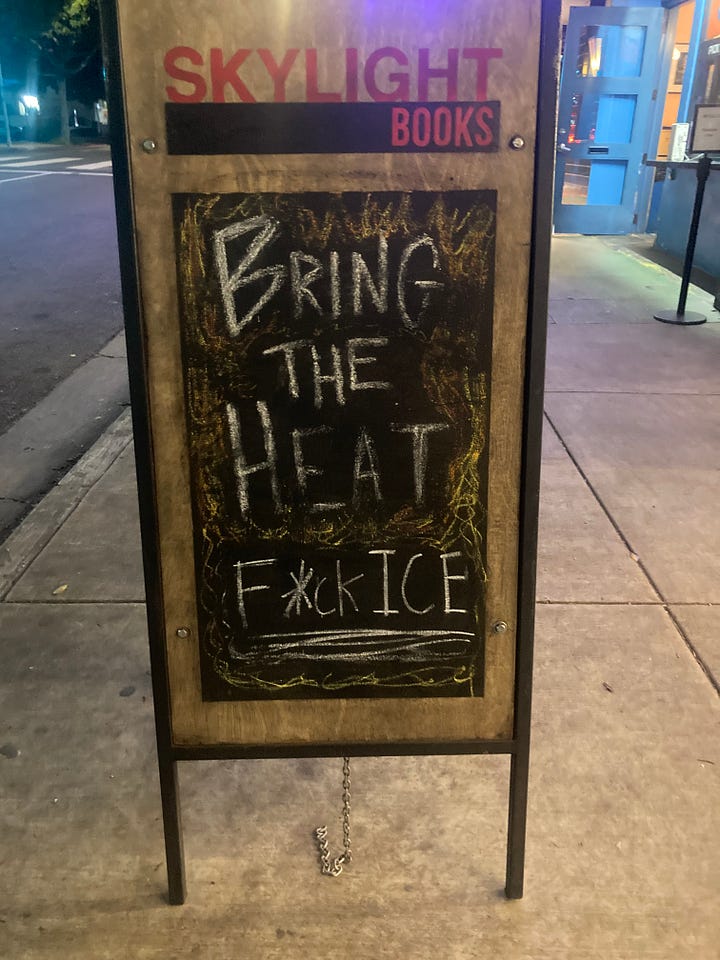 SKYLIGHT
BOOKS
BRING
THE
HEAT
F*CK ICE